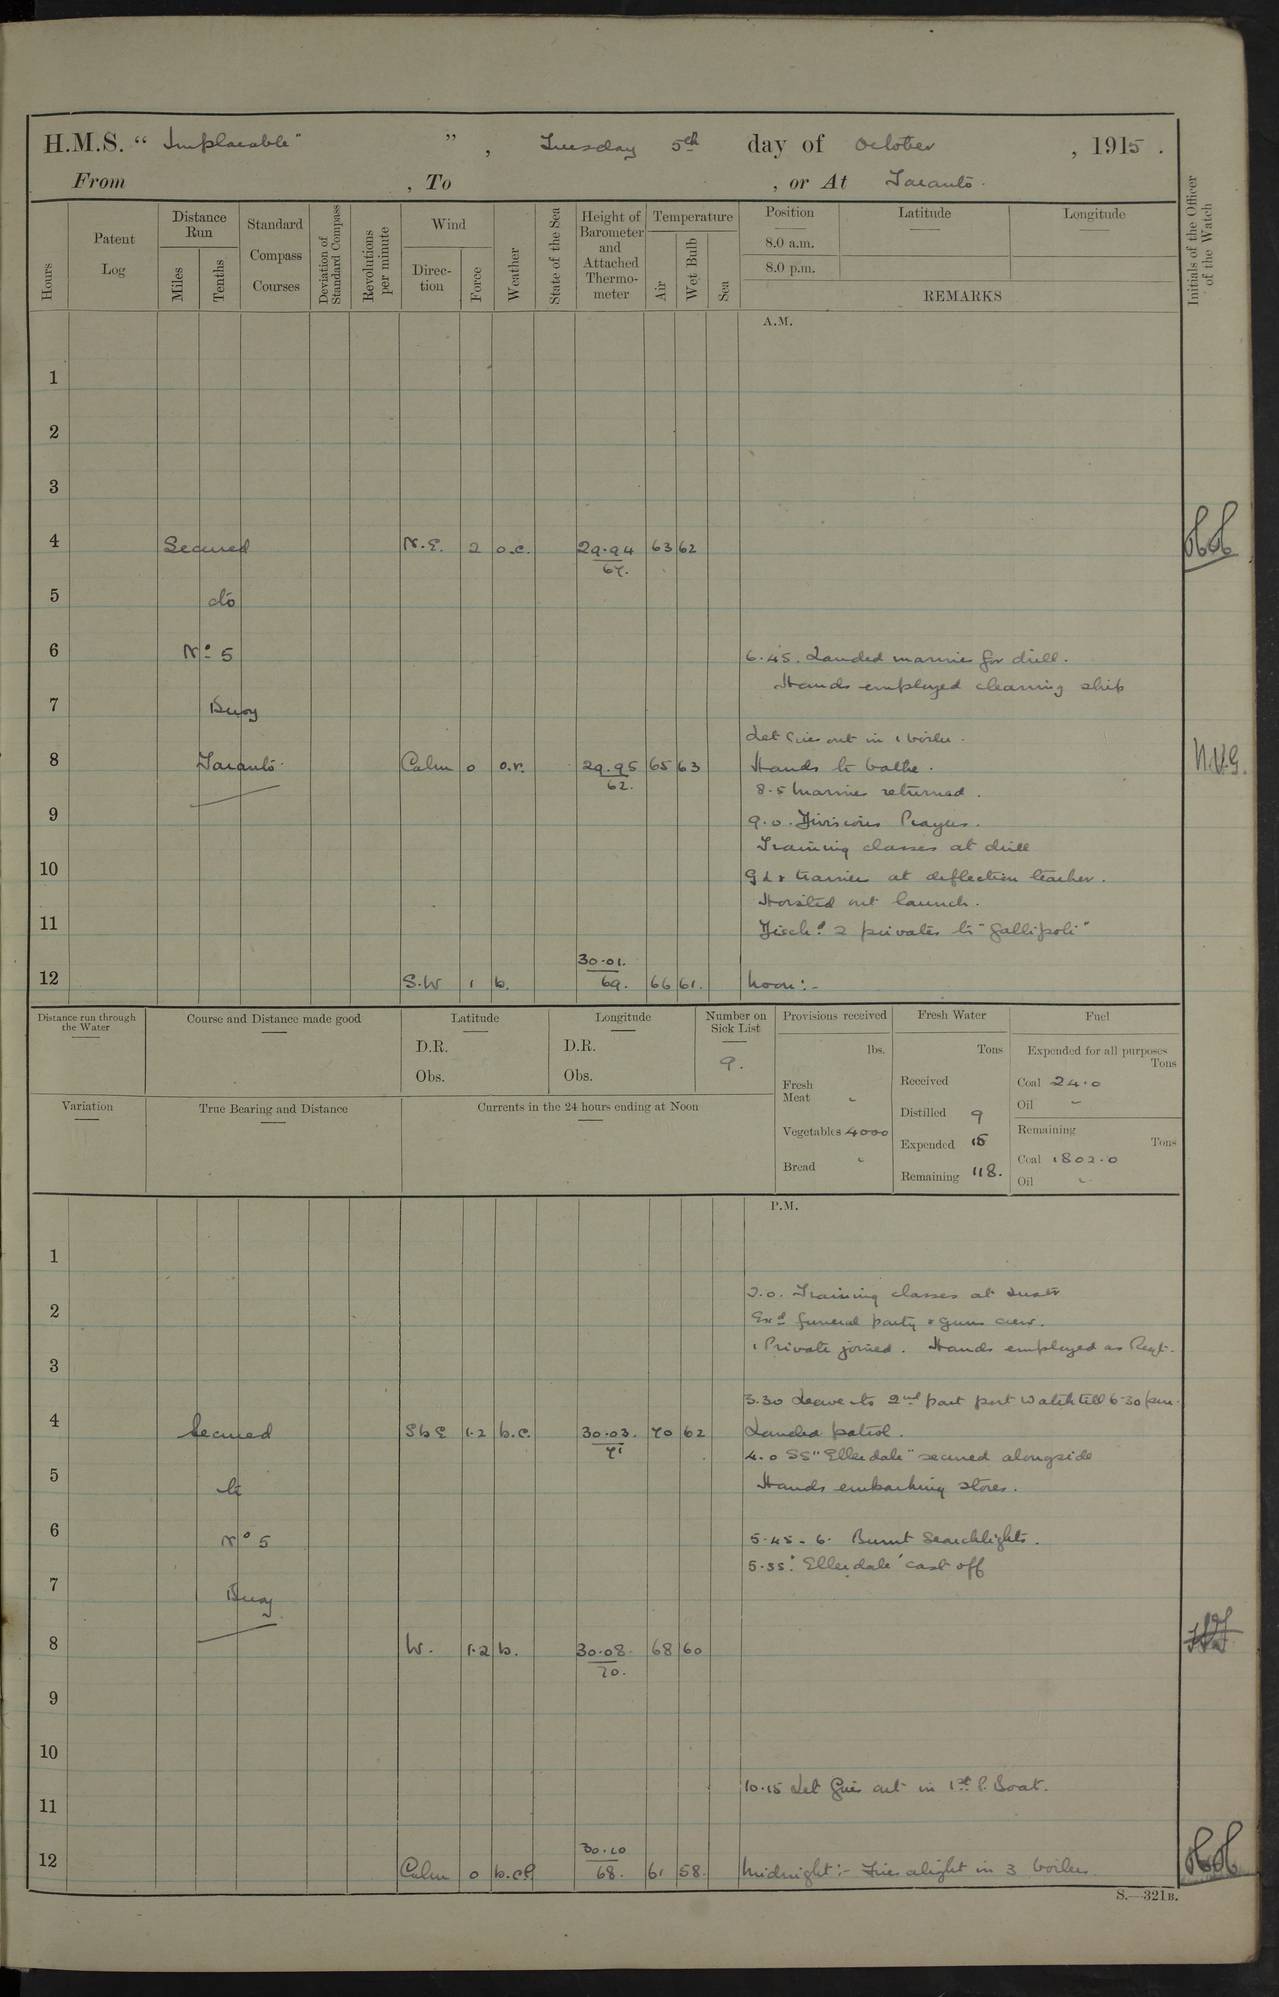 H.M.S. " Implacable" " , Tuesday 5th day of October , 1915 .
From , To , or At Taranto.
Hours
Patent Log
Distance Run
Miles
Tenths
Standard Compass Courses
Deviation of Standard Compass
Revolutions per minute
Wind
Direc-tion
Force
Weather
State of the Sea
Height of Barometer and Attached Thermo-meter
Temperature
Air
Wet Bulb
Sea
Position
8.0 a.m.
8.0 p.m.
Latitude
Longitude
REMARKS
Initials of the Officer of the Watch
A.M.
1
2
3
4 Secured N.E. 2 o.c. 29.94 63 62
67.
5 do
6 No 5 6.45. Landed marines for drill.
Hands employed cleaning ship
7 Buoy
Let fires out in 1 boiler.
8 Taranto. Calm 0 o.r. 29.95 65 63 Hands to bathe. N.V.G.
62. 8.5 Marines returned.
9 9.0. Divisions Prayers.
Training classes at drill
10 at deflection teacher.
Hoisted out launch.
11 Disch.d 2 privates to "Gallipoli"
30.01.
12 S.W 1 b. 69. 66 61. Noon:-
Distance run through the Water
Course and Distance made good
Latitude
D.R.
Obs.
Longitude
D.R.
Obs.
Number on Sick List
9.
Provisions received
lbs.
Fresh Meat -
Vegetables 4000
Bread -
Fresh Water
Tons
Received
Distilled 9
Expended 15
Remaining 118.
Fuel
Expended for all purposes
Tons
Coal 24.0
Oil -
Remaining
Tons
Coal 1802.0
Oil -
Variation
True Bearing and Distance
Currents in the 24 hours ending at Noon
P.M.
1
2.0. Training classes at
2 Exd funeral party & guns crew.
1 Private joined. Hands employed as Reqt.
3
3.30 Leave to 2nd part port watch till 6.30 pm.
4 Secured SbE 1.2 b.c. 30.03. 70 62 Landed patrol.
71 4.0 SS "Ellerdale" secured alongside
5 to Hands embarking stores.
6 No 5 5.45 - 6. Burnt Searchlights.
5.55. "Ellerdale" cast off
7 Buoy
8 W. 1.2 b. 30.08. 68 60
70.
9
10
10.15 Let fires out in 1st P. Boat.
11
30.10
12 Calm 0 b.c. 68. 61 58. Midnight:- Fires alight in 3 boilers.
S.—321B.